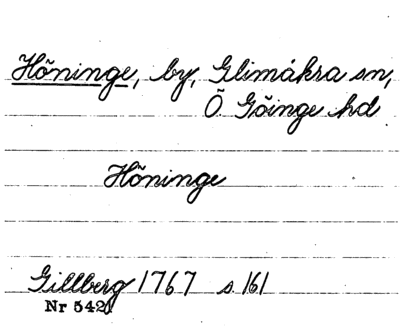 Höninge, by, Glimåkra sn,
Ö Göinge hd
Höninge
Gillberg 1767 s 161
Nr 5420